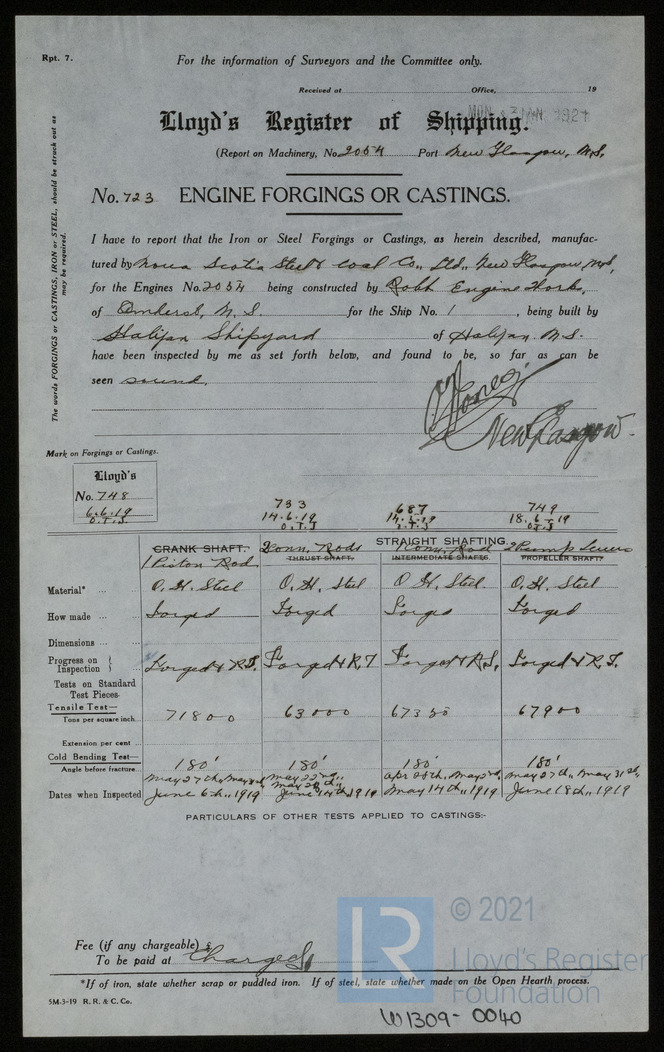 Rpt. 7.
For the information of Surveyors and the Committee only.
Received at Office, 19
Lloyd's Register of Shipping.
(Report on Machinery, No. 2054 Port New Glasgow, N.S.
No. 723 ENGINE FORGINGS OR CASTINGS.
The words FORGINGS or CASTINGS, IRON or STEEL, should be struck out as
may be required.
I have to report that the Iron or Steel Forgings or Castings, as herein described, manufac-
tured by Nova Scotia Steel & Coal Co., Ltd., New Glasgow, N.S,
for the Engines No. 2054 being constructed by Robb Engine Works,
of Amherst, N.S. for the Ship No. 1, being built by
Halifax Shipyard of Halifax. N.S.
have been inspected by me as set forth below, and found to be, so far as can be
seen sound.
New Glasgow.
Mark on Forgings or Castings.
Lloyd's
No. 748
6.6.19
O.T.J.
733 687 749
14.6.19 14.6.19 18.6.19
O.T.J O.T.J O.T.J
CRANK SHAFT. STRAIGHT SHAFTING.
1 Piston Rod 2 Conn. Rods 1 Conn. Rod 2 Pump Levers
THRUST SHAFT. INTERMEDIATE SHAFTS. PROPELLER SHAFT.
Material* O.H. Steel O.H. Steel O H. Steel O.H. Steel
How made Forged Forged Forged Forged
Dimensions
Progress on Inspection } Forged & R.T. Forged & R,T Forged & R.T, Forged & R.T.
Tests on Standard
Test Pieces.
Tensile Test—
Tons per square inch 71800 63000 67350 67900
Extension per cent
Cold Bending Test—
Angle before fracture 180' 180' 180' 180'
Dates when Inspected May 27th, June 6th,, 1919 May 22nd,, June 14th, 1919 May 14th,, 1919 May 27th,, May 31st, June 18th,, 1919
PARTICULARS OF OTHER TESTS APPLIED TO CASTINGS:-
Fee (if any chargeable) $
To be paid at Charged
*If of iron, state whether scrap or puddled iron. If of steel, state whether made on the Open Hearth process.
5M-3-19 R. R. & C. Co.
LR
© 2021
Lloyd's Register
Foundation
W1309-0040